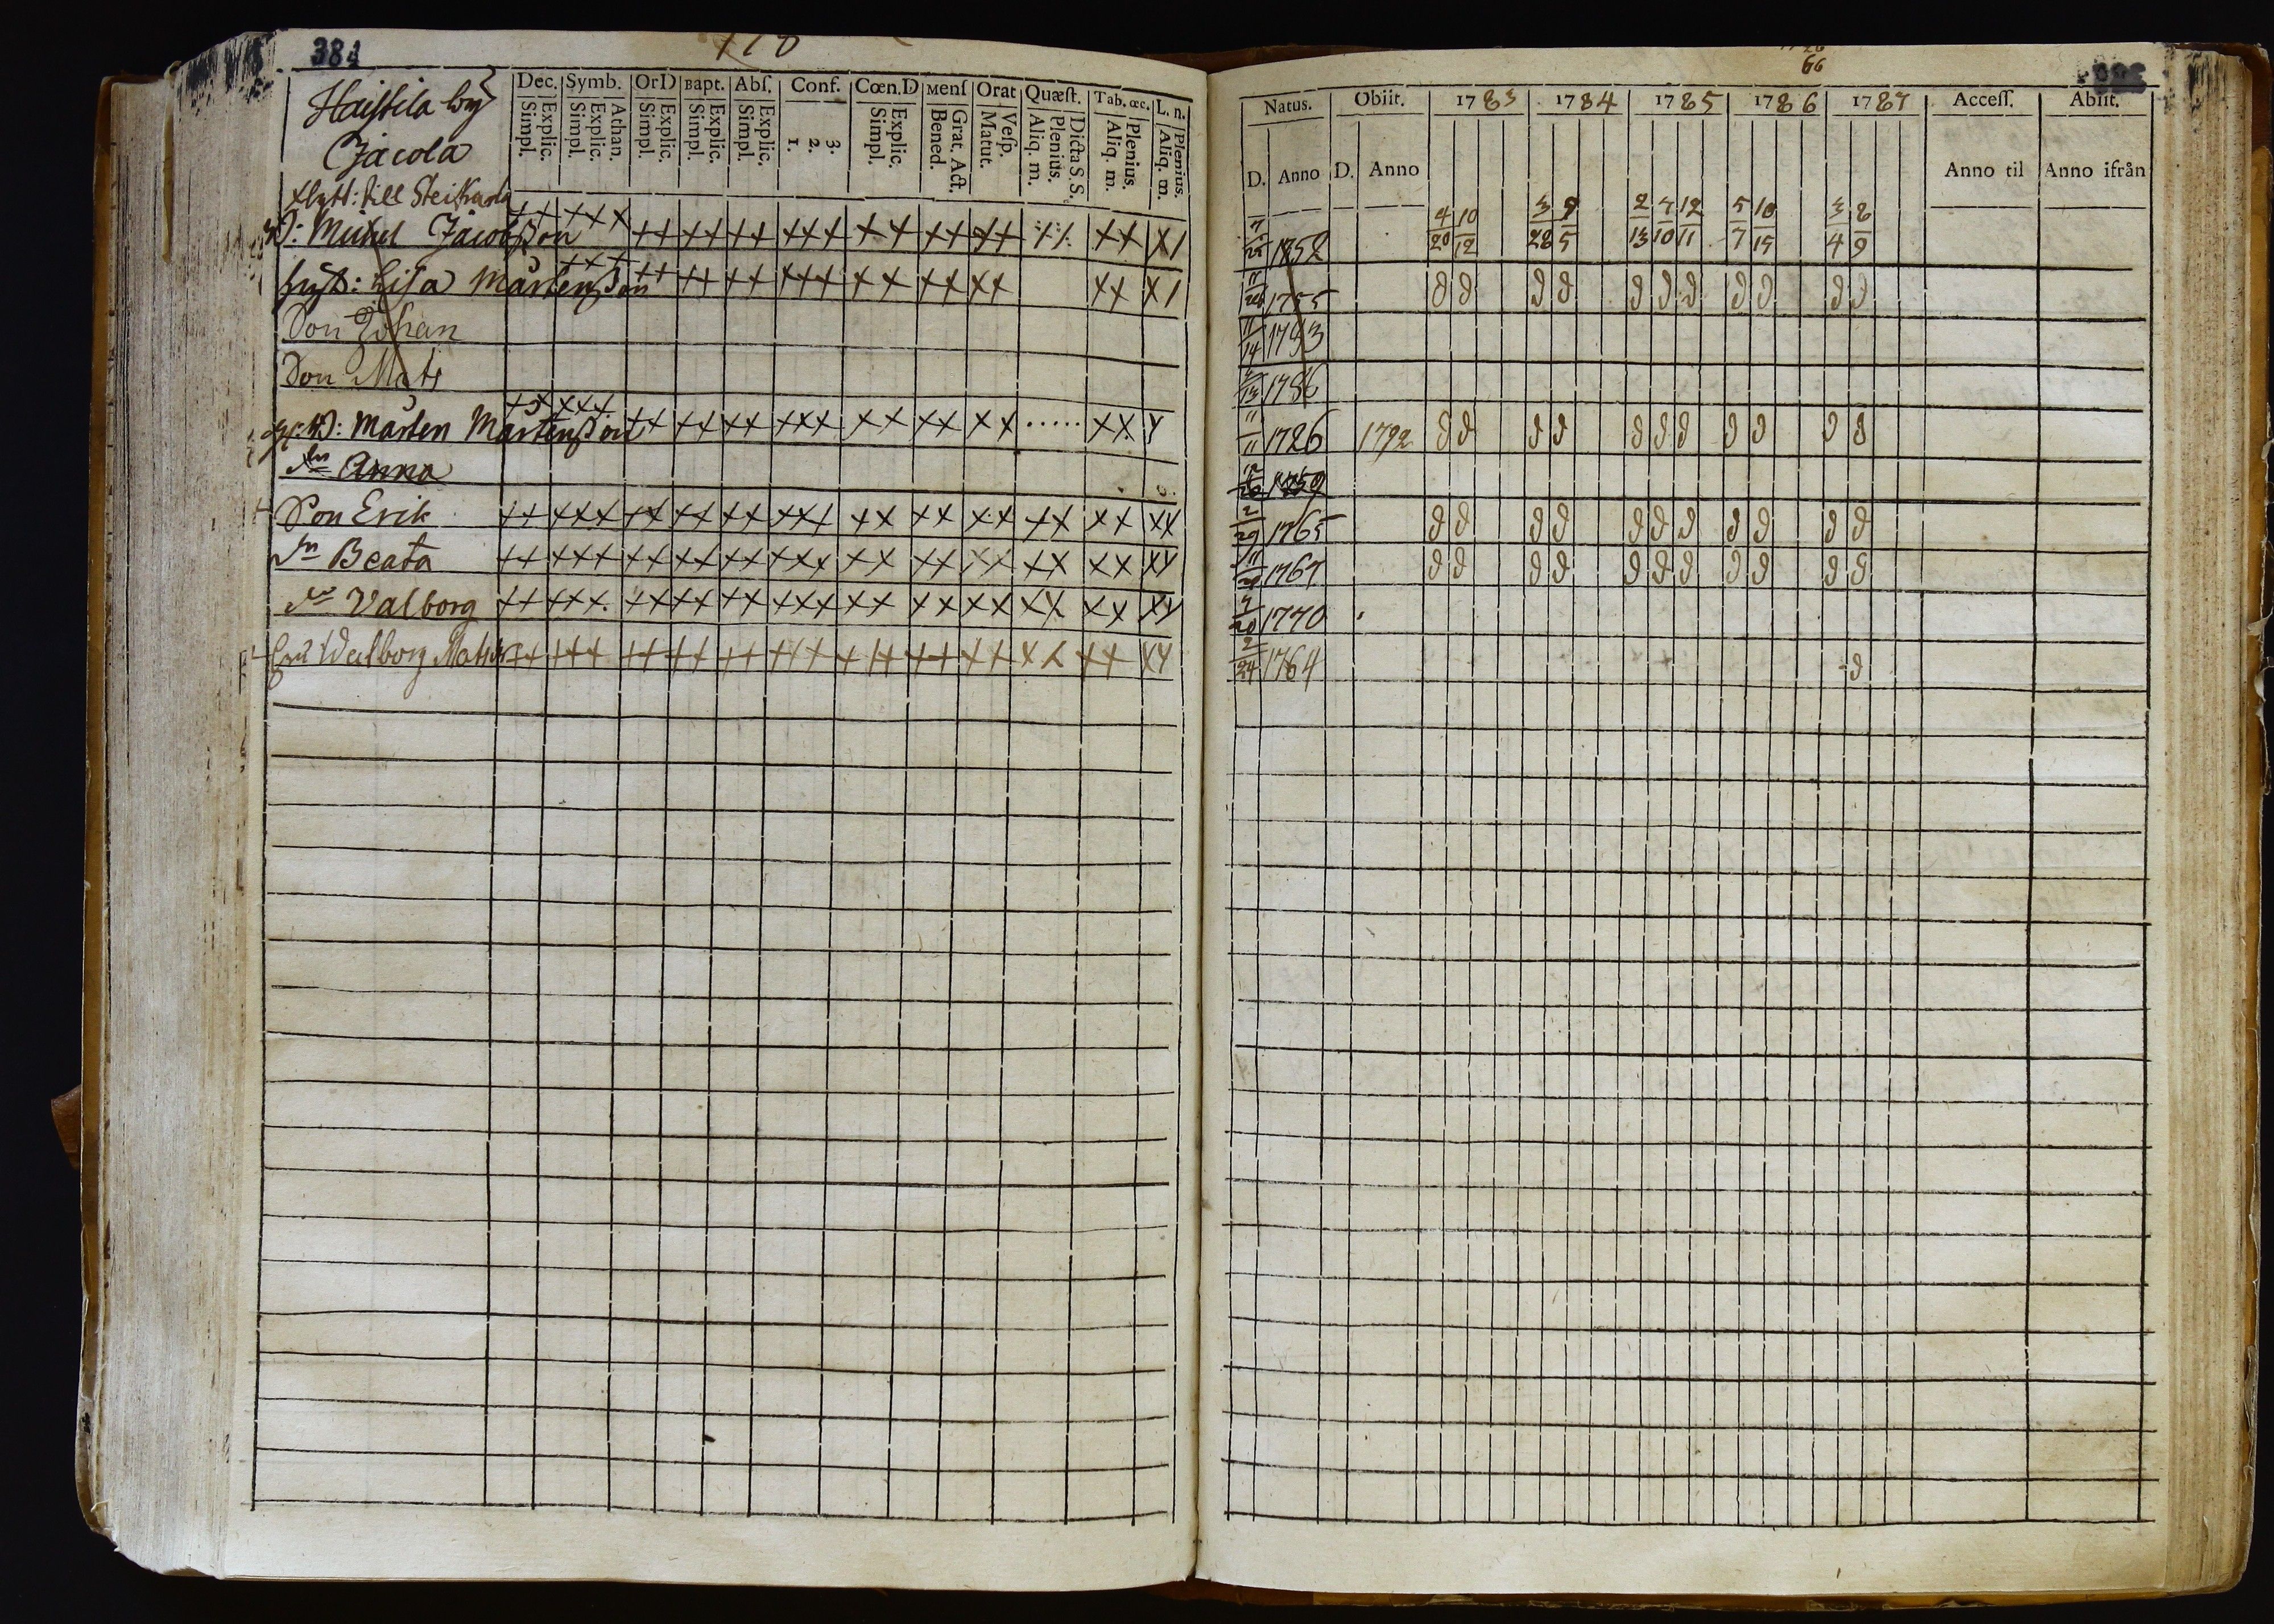 384
178
Haistila by
Jacola
Dec. Symb. OrD Bapt. Abſ. Conf. Cœn.D Menſ Orat Quæſt. Tab. œc. L. n.
Explic. Simpl. Athan. Explic. Simpl. Explic. Simpl. Explic. Simpl. Explic. Simpl. 3. 2. 1. Explic. Simpl. Grat. Act. Bened. Veſp. Matut. Dicta S.S. Plenius. Aliq. m. Plenius. Aliq. m. Plenius. Aliq. m.
flytt: till Steikarla
Michel Jacobsson ++ +++ ++ ++ ++ +++ ++ ++ ++ ++ x1
hust: Lisa Mårtensdon +++ ++ ++ ++ +++ ++ ++ ++ ++ x1
Son Johan
Son Mats
Mårten Mårtensson ++ +++ ++ ++ ++ +++ ++ ++ ++ ..... ++ x
dr Anna
Son Erik ++ +++ ++ ++ ++ +++ ++ ++ ++ ++ ++ xx
dr Beata ++ +++ ++ ++ ++ +++ ++ ++ ++ ++ ++ xx
dr Valborg ++ +++ ++ ++ ++ +++ ++ ++ ++ ++ ++ xx
Walborg Matsdr ++ +++ ++ ++ ++ +++ +++ ++ ++ ++ ++ xx
66
Natus. Obiit. 1783 1784 1785 1786 1787 Acceſſ. Abiit.
D. Anno D. Anno Anno til Anno ifrån
4/20 10/12 3/28 9/5 2/13 4/10 12/11 5/7 10/15 3/4 8/9
1752
1755
11/14 1783
1786
11/11 1726 1792
1759
2/29 1765
11/29 1767
1770
2/24 1764